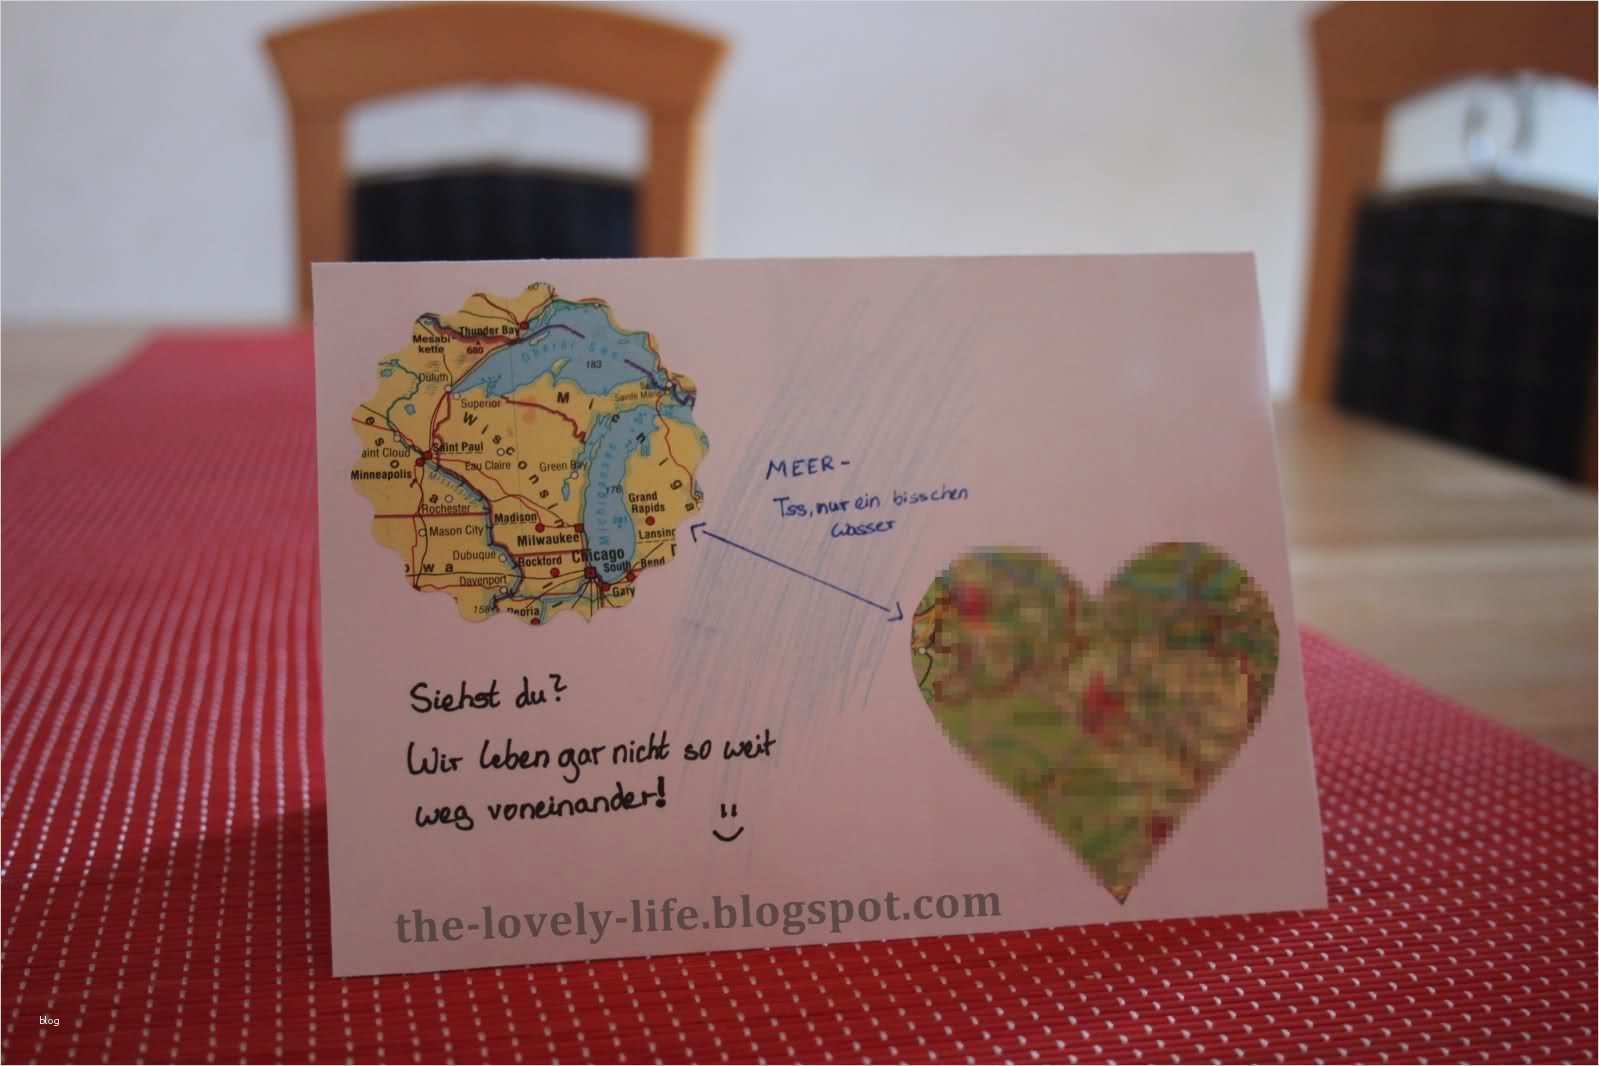 Thunder Bay
Mesabi-
kette
680
Oberer See
183
Duluth
Superior
Sainte Marie
Michigan
Wisconsin
aint Cloud
Saint Paul
Minneapolis
Eau Claire
Green Bay
Mississippi
176
281
Grand
Rapids
Rochester
Madison
Mason City
Milwaukee
Lansing
Michigansee
Dubuque
Rockford
Chicago
South
Bend
owa
Davenport
Gary
158
Peoria
MEER-
Tss, nur ein bisschen
Wasser
Siehst du?
Wir leben gar nicht so weit
weg voneinander!
the-lovely-life.blogspot.com
blog